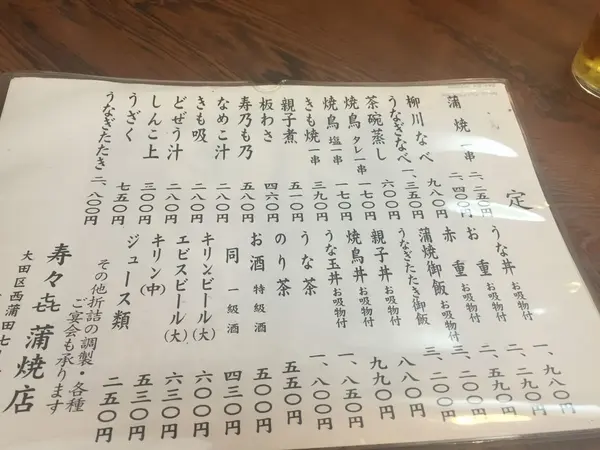 定
蒲焼 一串 二、二五〇円
二、四〇〇円
柳川なべ 九八〇円
うなぎなべ 一、三五〇円
茶碗蒸し 六〇〇円
焼鳥 タレ一串 一七〇円
焼鳥 塩一串 一七〇円
きも焼 一串 三九〇円
親子煮 五一〇円
板わさ 四六〇円
寿乃も乃 五八〇円
なめこ汁 二八〇円
きも吸 二八〇円
どぜう汁 二八〇円
しんこ上 三〇〇円
うざく 七五〇円
うなぎたたき 二、八〇〇円
うな丼 お吸物付 一、九八〇円
お重 お吸物付
赤重 お吸物付
蒲焼御飯 お吸物付
うなぎたたき御飯 三、二〇〇円
親子丼 お吸物付 八八〇円
焼鳥丼 お吸物付 九九〇円
うな玉丼 お吸物付 一、八〇〇円
うな茶 一、八〇〇円
のり茶 五五〇円
お酒 特級酒 五〇〇円
同 一級酒 四三〇円
キリンビール(大) 六〇〇円
エビスビール(大) 六三〇円
キリン(中) 五三〇円
ジュース類 二五〇円
その他折詰の調製・各種
ご宴会も承ります
寿々㐂 蒲焼店
大田区西蒲田七